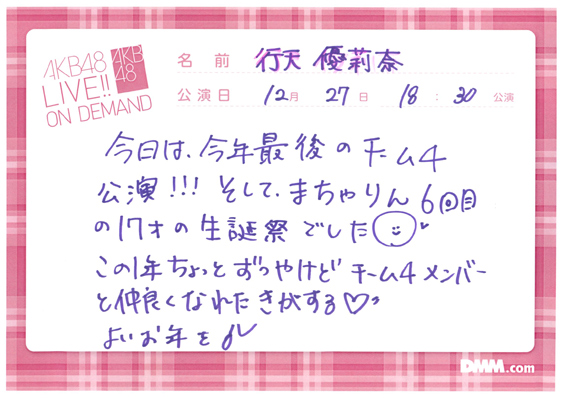 AKB48
LIVE!!
ON DEMAND
AKB
48
名前 行天 優莉奈
公演日 12月 27日 18:30 公演
今日は、今年最後のチーム4
公演!!!そして、まちゃりん6回目
の17才の生誕祭でした
この1年ちょっとずつやけど チーム4メンバー
と仲良くなれたきがする♡
よいお年を
DMM.com